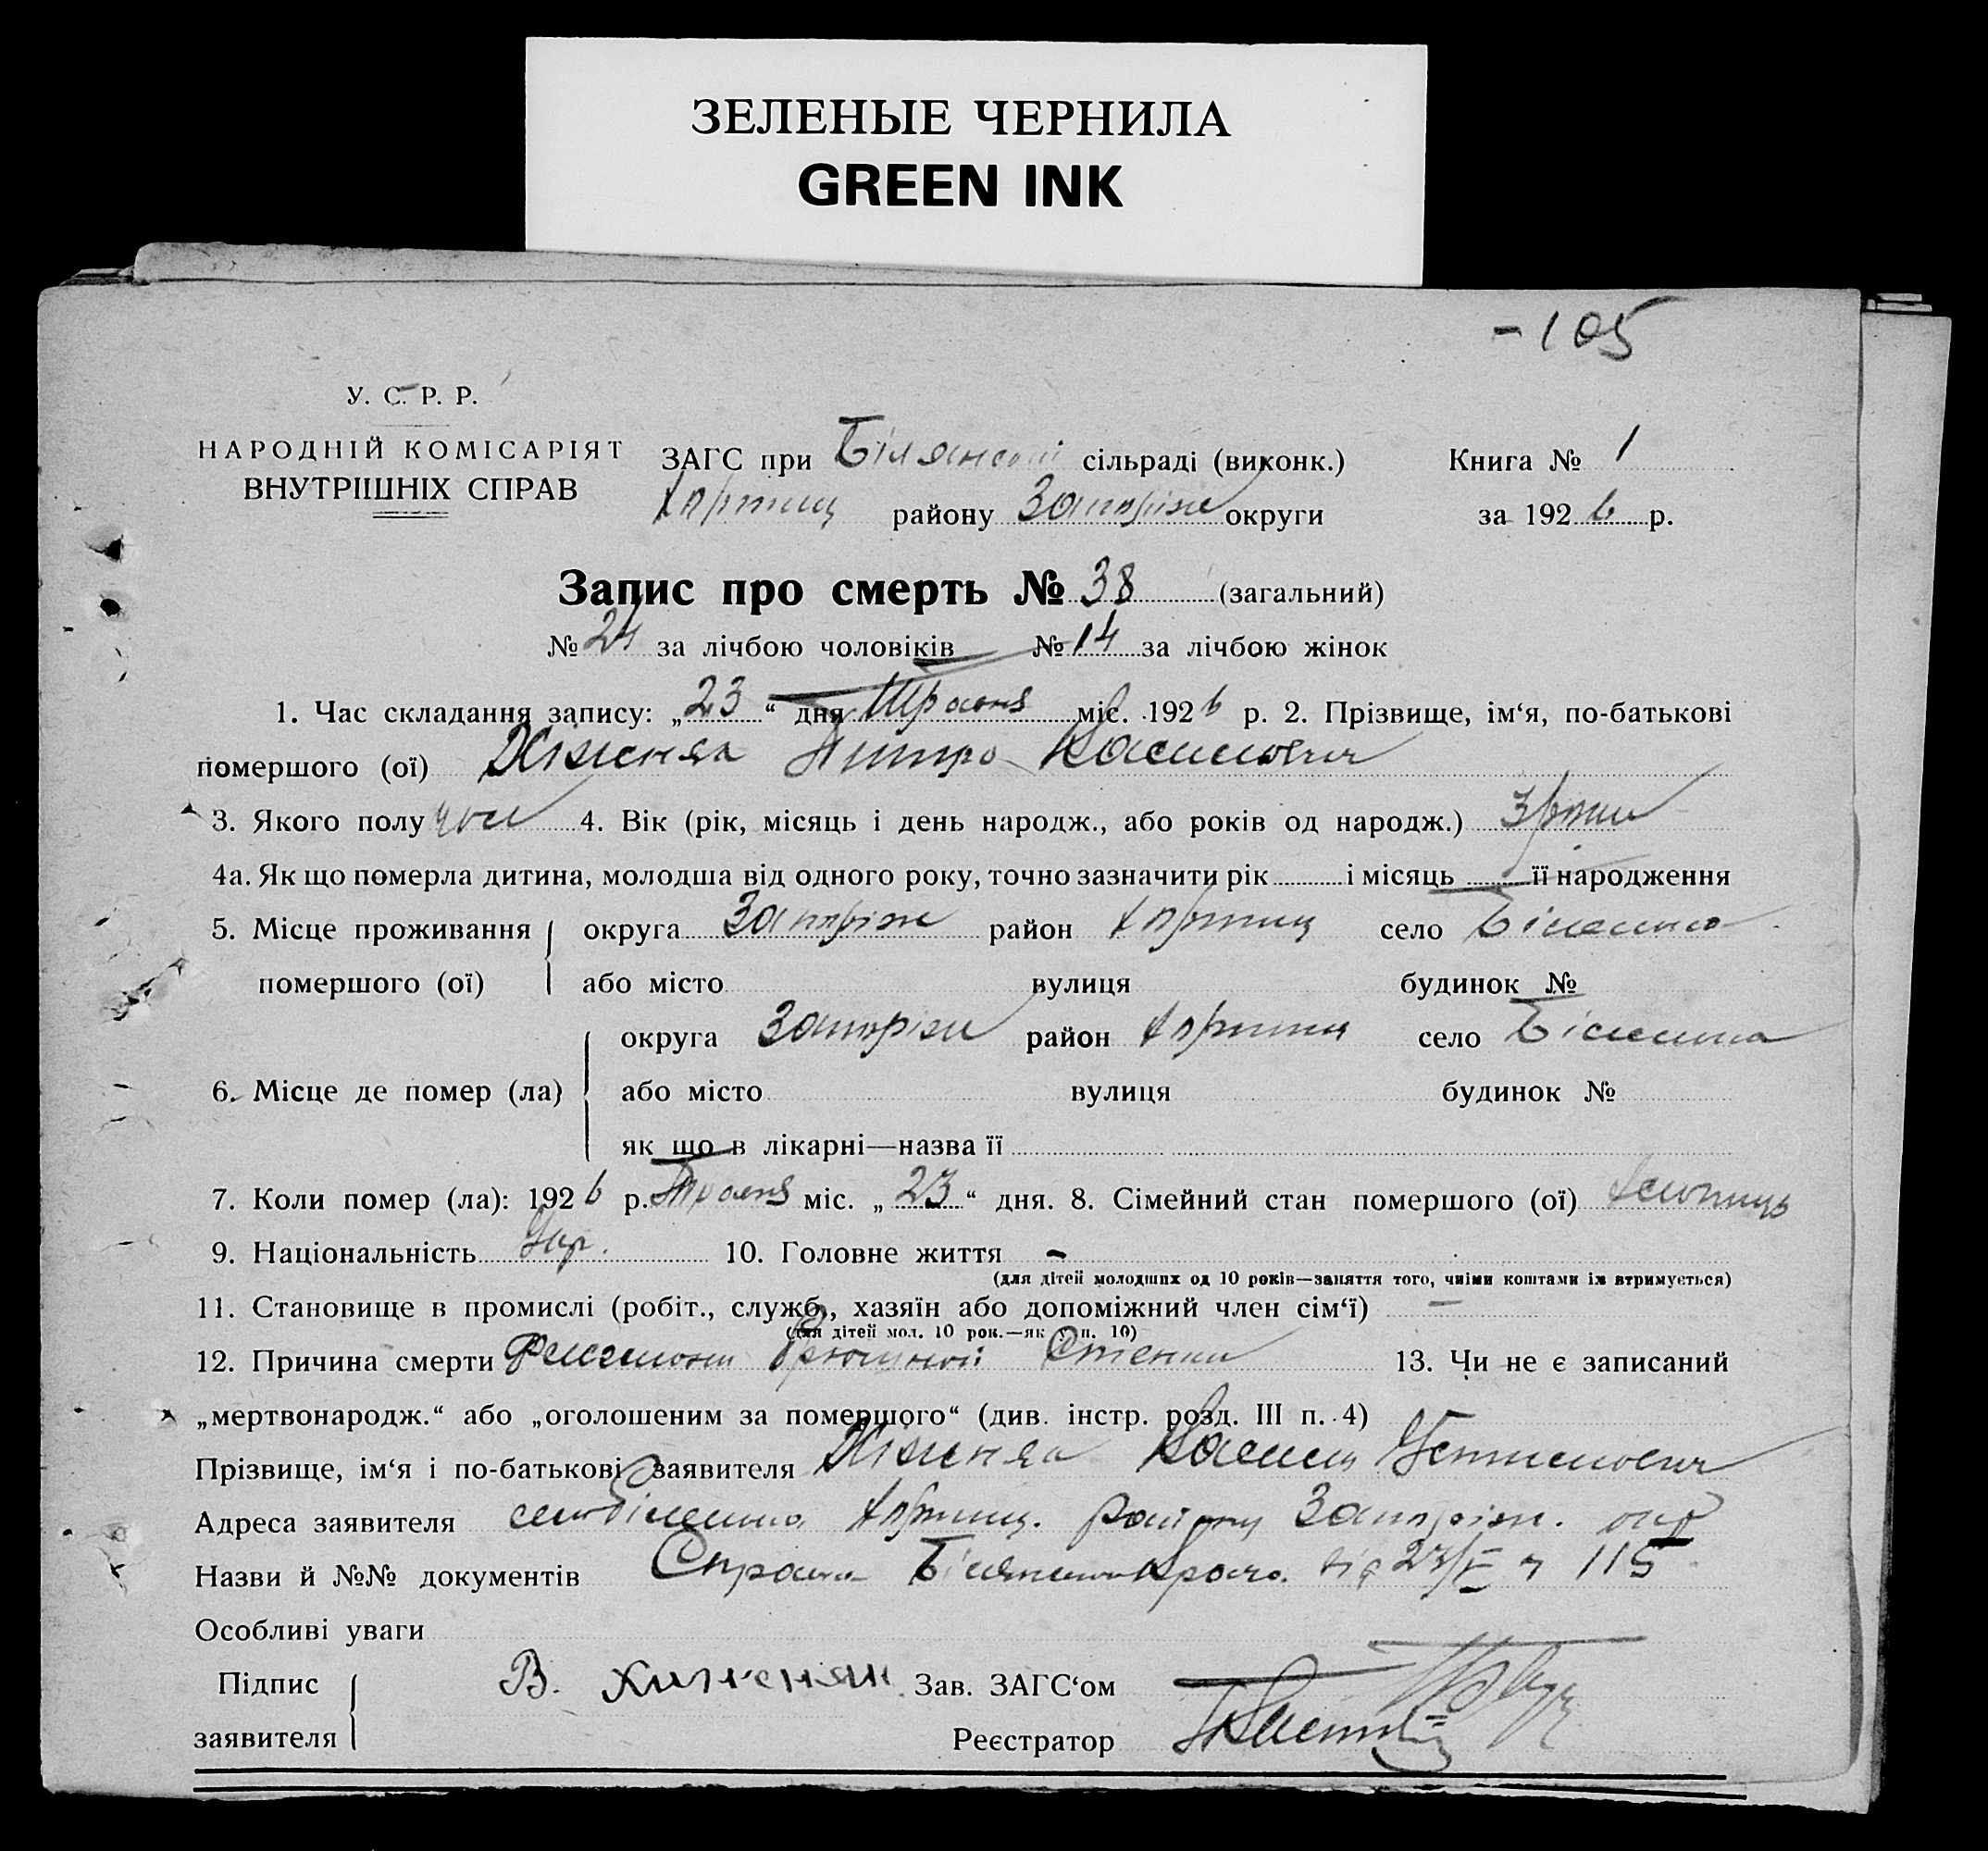 ЗЕЛЕНЫЕ ЧЕРНИЛА
GREEN INK
-105
У. С. Р. Р.
НАРОДНІЙ КОМІСАРІЯТ
ВНУТРІШНІХ СПРАВ
ЗАГС при сільраді (виконк.)
Книга № 1
району Запоріж округи
за 1926 р.
Запис про смерть № 38 (загальний)
№ 24 за лічбою чоловіків № 14 за лічбою жінок
1. Час складання запису: „23“ дня Травня міс. 1926 р. 2. Прізвище, ім‘я, по-батькові
помершого (ої) Хижняк Дмитро
3. Якого полу чол 4. Вік (рік, місяць і день народж., або років од народж.) 3
4а. Як що померла дитина, молодша від одного року, точно зазначити рік і місяць її народження
5. Місце проживання помершого (ої) округа Запоріж район Хортиц село Біленька
або місто вулиця будинок №
6. Місце де помер (ла) округа Запоріж район Хортиц село Біленька
або місто вулиця будинок №
як що в лікарні—назва її
7. Коли помер (ла): 1926 р. Травня міс. „23“ дня. 8. Сімейний стан помершого (ої) Хлопець
9. Національність Укр. 10. Головне життя -
(для дітей молодших од 10 років—заняття того, чиїми коштами їх втримується)
11. Становище в промислі (робіт., служб., хазяїн або допоміжний член сім‘ї) —
(для дітей мол. 10 рок.—як у п. 10)
12. Причина смерти Флегмони брюшной Стенки 13. Чи не є записаний
„мертвонародж.“ або „оголошеним за помершого“ (див. інстр. розд. III п. 4)
Прізвище, ім‘я і по-батькові заявителя Хижняк Устимович
Адреса заявителя село Біленька Хортиц. району Запоріж. окр
Назви й №№ документів від 115
Особливі уваги
Підпис заявителя В. Хижняк Зав. ЗАГС‘ом
Реєстратор